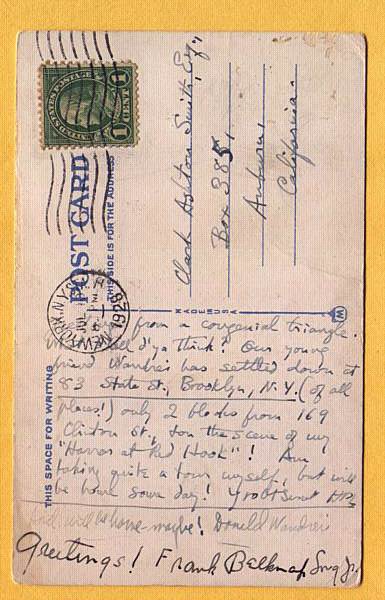 UNITED STATES POSTAGE
1 CENT 1
POST CARD
THIS SIDE IS FOR THE ADDRESS
NEW YORK, N.Y.
1928
Clark Ashton Smith, Esq.,
Box 385,
Auburn,
California.
MADE IN USA
W
THIS SPACE FOR WRITING
from a congenial triangle.
d'ya think? Our young
friend Wandrei has settled down at
83 State St., Brooklyn, N.Y. (of all
places!) only 2 blocks from 169
Clinton St., & on the scene of my
"Horror at Red Hook"! Am
taking quite a tour myself, but will
be home some day! Yr obt Servt HPL
And will be home—maybe! Donald Wandrei
Greetings! Frank Belknap Long Jr.